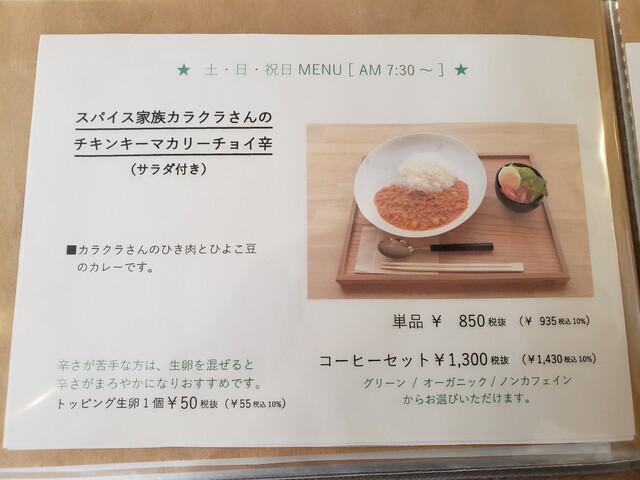 ★ 土・日・祝日 MENU [ AM 7:30 ~ ] ★
スパイス家族カラクラさんの
チキンキーマカリーチョイ辛
(サラダ付き)
■カラクラさんのひき肉とひよこ豆
のカレーです。
単品 ¥ 850 税抜 (¥ 935 税込10%)
コーヒーセット¥1,300 税抜 (¥1,430 税込10%)
グリーン / オーガニック / ノンカフェイン
からお選びいただけます。
辛さが苦手な方は、生卵を混ぜると
辛さがまろやかになりおすすめです。
トッピング生卵1個¥50 税抜 (¥55 税込10%)